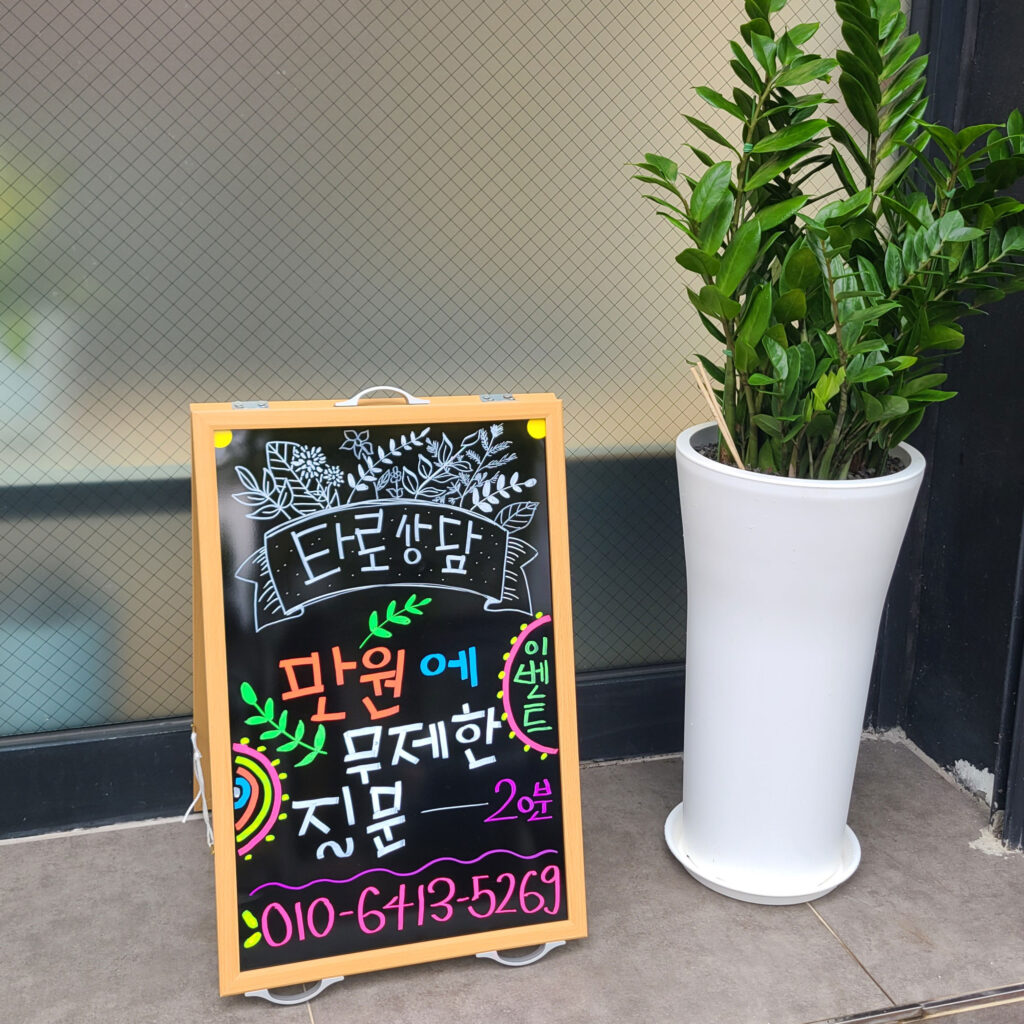 타로상담
만원에
이벤트
무제한
질문 — 20분
010-6413-5269